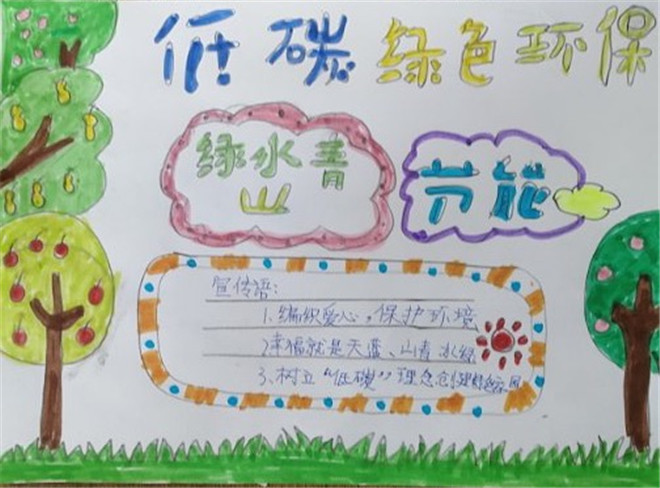 低碳绿色环保
绿水青
山
节能
宣传语:
1.编织爱心,保护环境
2幸福就是天蓝、山青水绿
3、树立“低碳”理念创建绿色